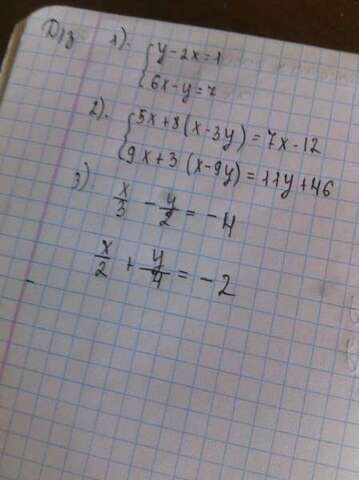 Д/з 1). { y - 2x = 1
6x - y = 7
2). { 5x + 8 (x - 3y) = 7x - 12
9x + 3 (x - 9y) = 11y + 46
3) x/3 - y/2 = -4
x/2 + y/4 = -2